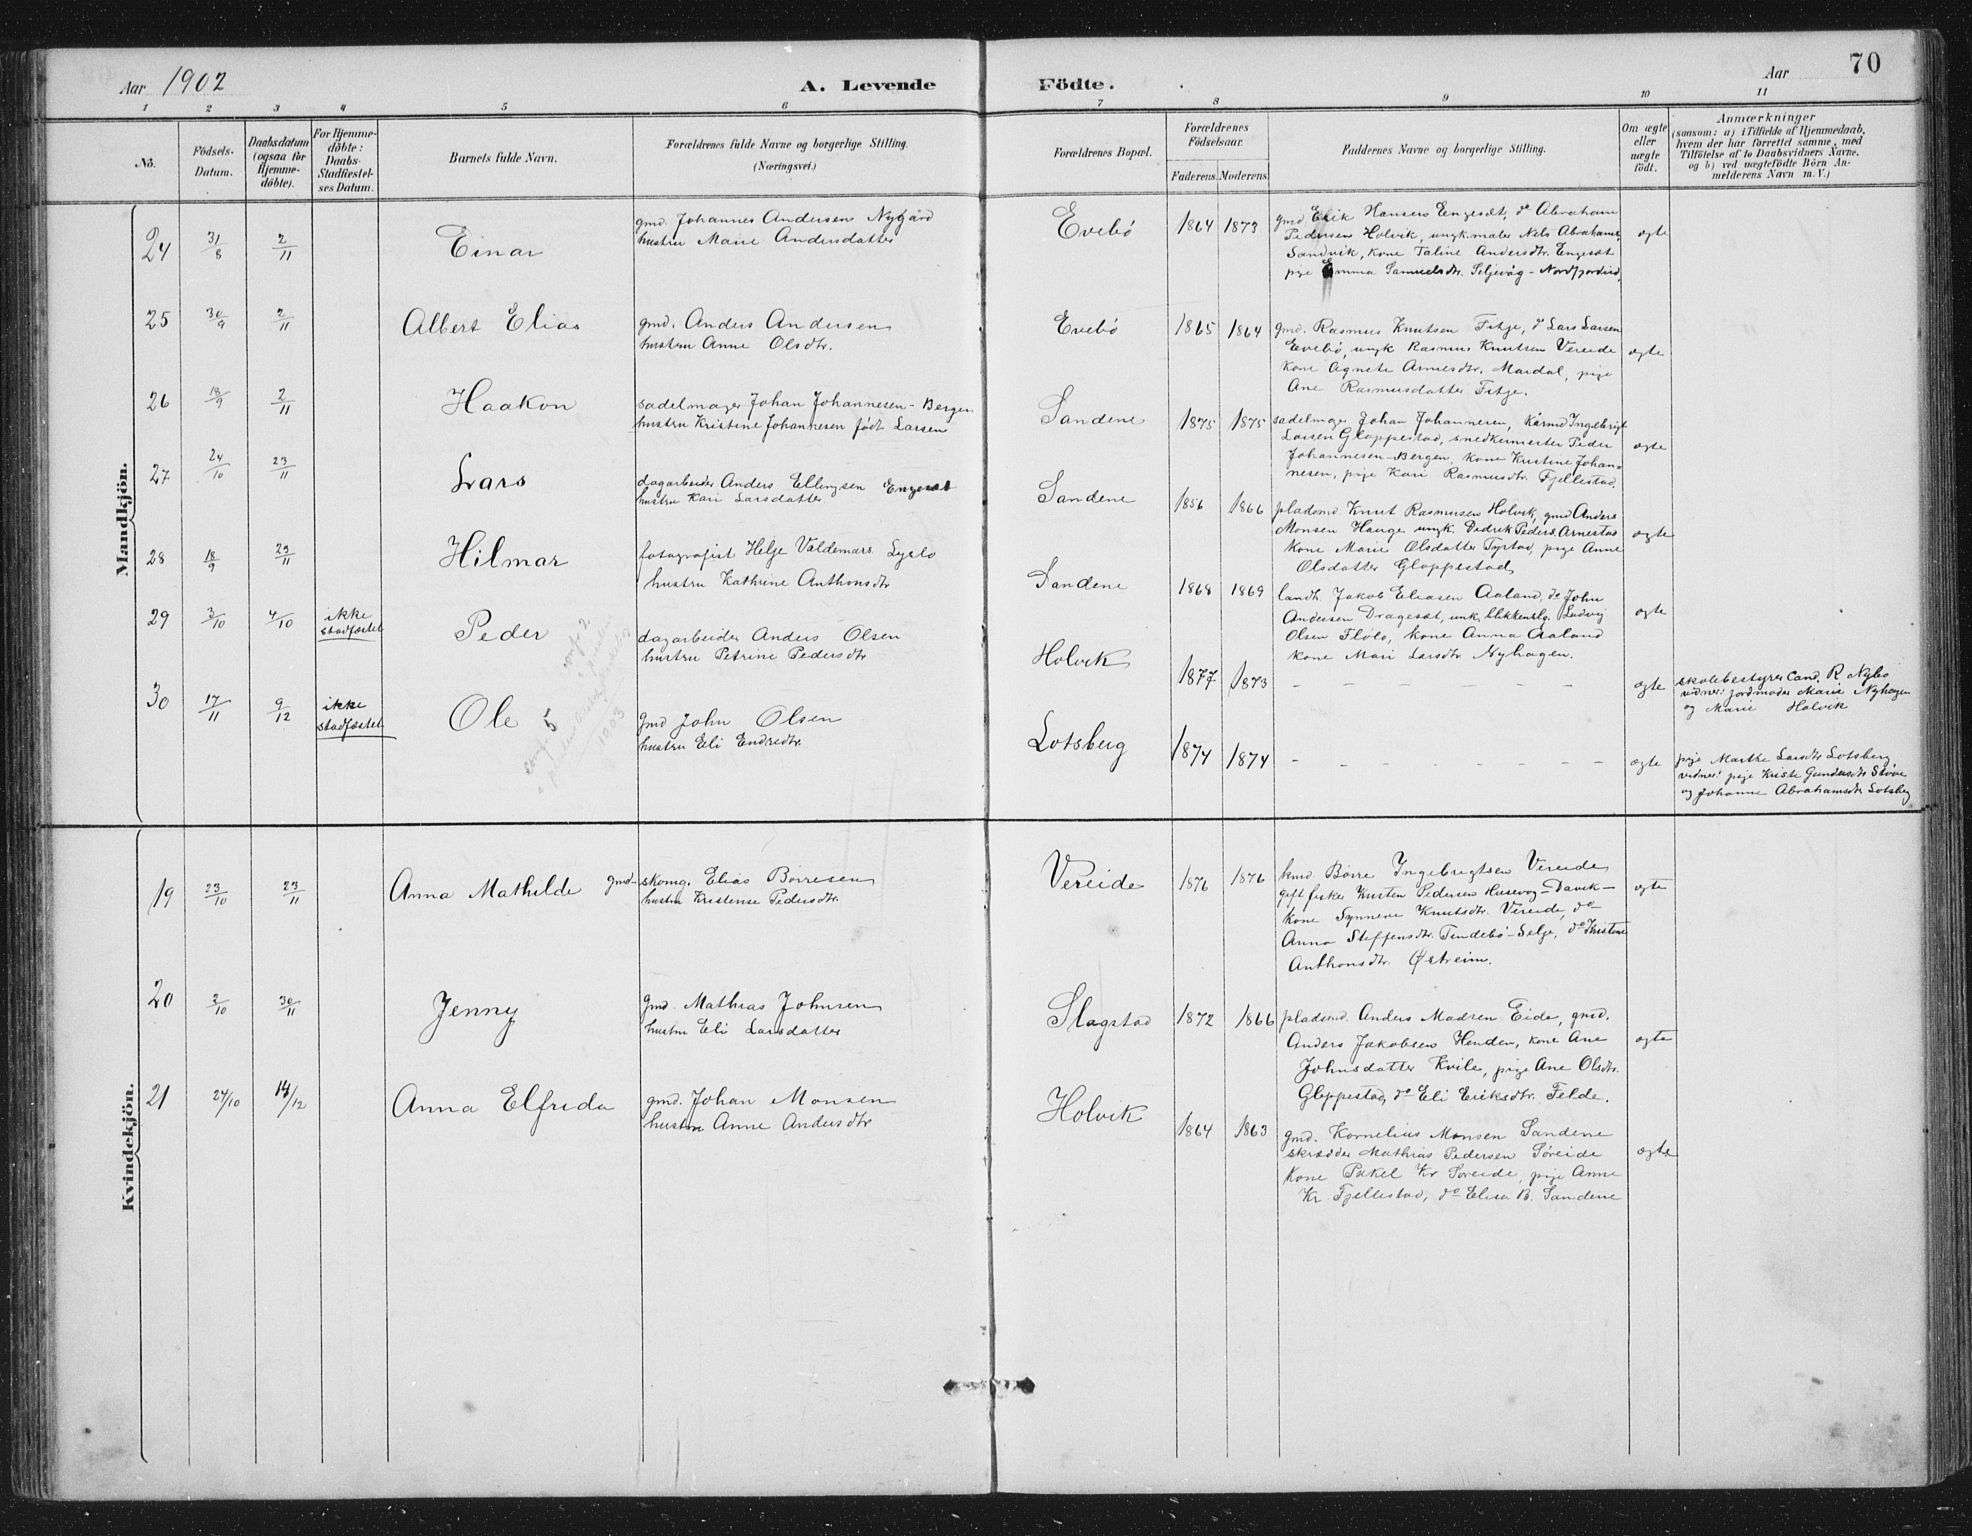 Aar 1902
A. Levende Födte.
Aar
70
1 2 3 4 5 6 7 8 9 10 11
No.
Födsels-Datum.
Daabsdatum (ogsaa for Hjemme-döbte).
For Hjemme-döbte: Daabs-Stadfæstel-ses Datum.
Barnets fulde Navn.
Forældrenes fulde Navne og borgerlige Stilling.
(Næringsvei.)
Forældrenes Bopæl.
Forældrenes Födselsaar.
Faderens. Moderens.
Faddernes Navne og borgerlige Stilling.
Om ægte eller uægte födt.
Anmærkninger
(saasom: a) i Tilfælde af Hjemmedaab,
hvem der har forrettet samme, med
Tilföielse af to Daabsvidners Navne.
og b) ved uægtefödte Börn An-
melderens Navn m. V.)
Mandkjön.
24 31/8 2/11 Einar
gmd. Johannes Andersen Nygård
hustru Marie Andersdatter
Evebö 1864 1873
gmd Erik Hansen Engesæt, do Abraham
Pedersen Holvik, ungk. maler Nels Abrahams.
Sandvik, kone Taline Andersdtr. Engesæt
pige Emma Samuelsdtr. Seljevåg - Nordfjordeid.
ægte
25 30/9 2/11 Albert Elias
gmd. Anders Andersen
hustru Anne Olsdtr.
Evebö 1865 1864
gmd. Rasmus Knutsen Fitje, do Lars Larsen
Evebö, ungk Rasmus Knutsen Vereide
kone Agnete Arnesdtr. Mardal, pige
Ane Rasmusdatter Fitje.
ægte
26 18/9 2/11 Haakon
sadelmager Johan Johannesen - Bergen
hustru Kristine Johannesen født Larsen
Sandene 1875 1875
sadelmager Johan Johannesen, Kårmd Ingebrigt
Larsen Gloppestad, snedkermester Peder
Johannesen-Bergen, kone Kristine Johan-
nesen, pige Kari Rasmusdtr Fjellestad.
ægte
27 24/10 23/11 Lars
dagarbeider Anders Ellingsen Engesæt
hustru Kari Larsdatter
Sandene 1856 1866
pladsmd Knut Rasmusen Holvik, gmd Anders
Monsen Hauge ungk. Didrik Peders. Arnestad
kone Marie Olsdatter Tystad, pige Anne
Olsdatter Gloppestad
ægte
28 18/9 23/11 Hilmar
fotografist Helje Valdemars.
hustru Kathrine Anthonsdtr
Sandene 1868 1869
landh. Jakob Eliasen Aaland, do John
Andersen Dragesæt, unk. blikkenslg. Ludvig
Olsen Flölo, kone Anna Aaland
kone Mari Larsdtr Nyhagen.
ægte
29 3/10 4/10 ikke stadfæstet Peder
dagarbeider Anders Olsen
hustru Petrine Pedersdtr
Holvik 1877 1873
ægte
skolebestyrer Cand. R Nybö
vidner: jordmoder Marie Nyhagen
og Marie Holvik
30 17/11 9/12 ikke stadfæstet Ole
gmd John Olsen
hustru Eli Endredtr.
Lotsberg 1874 1874
ægte
pige Marthe Larsdtr Lotsberg
vidner: pige Kriste Gundersdtr
og Johanne Abrahamsdtr Lotsberg
conf. 2
conf. 5
1903
Kvindekjön.
19 23/10 23/11 Anna Mathilde
gmd-skomg. Elias Börresen
hustru Kristense Pedersdtr.
Vereide 1876 1876
kmd Börre Ingebrigtsen Vereide
gift fisker Kristen Pedersen Husevåg-Davik-
kone Synneve Knutsdtr. Vereide, do
Anna Steffensdtr. Tendebö-Selje, do Kristine
Anthonsdtr. Østreim.
ægte
20 2/10 30/11 Jenny
gmd. Mathias Johnsen
hustru Eli Larsdatter
Slagstad 1872 1866
pladsmd. Anders Madsen Eide, gmd.
Anders Jakobsen Henden, kone Ane
Johnsdatter Kvile, pige Ane Olsdtr.
Gloppestad, do Eli Eriksdtr. Felde.
ægte
21 24/10 14/12 Anna Elfrida
gmd. Johan Monsen
hustru Anne Andersdtr
Holvik 1864 1863
gmd. Kornelius Monsen Sandene
skrædder Mathias Pedersen Söreide
kone Pakel Kr Söreide, pige Anne
Kr. Fjellestad, do Elisa B. Sandene
ægte